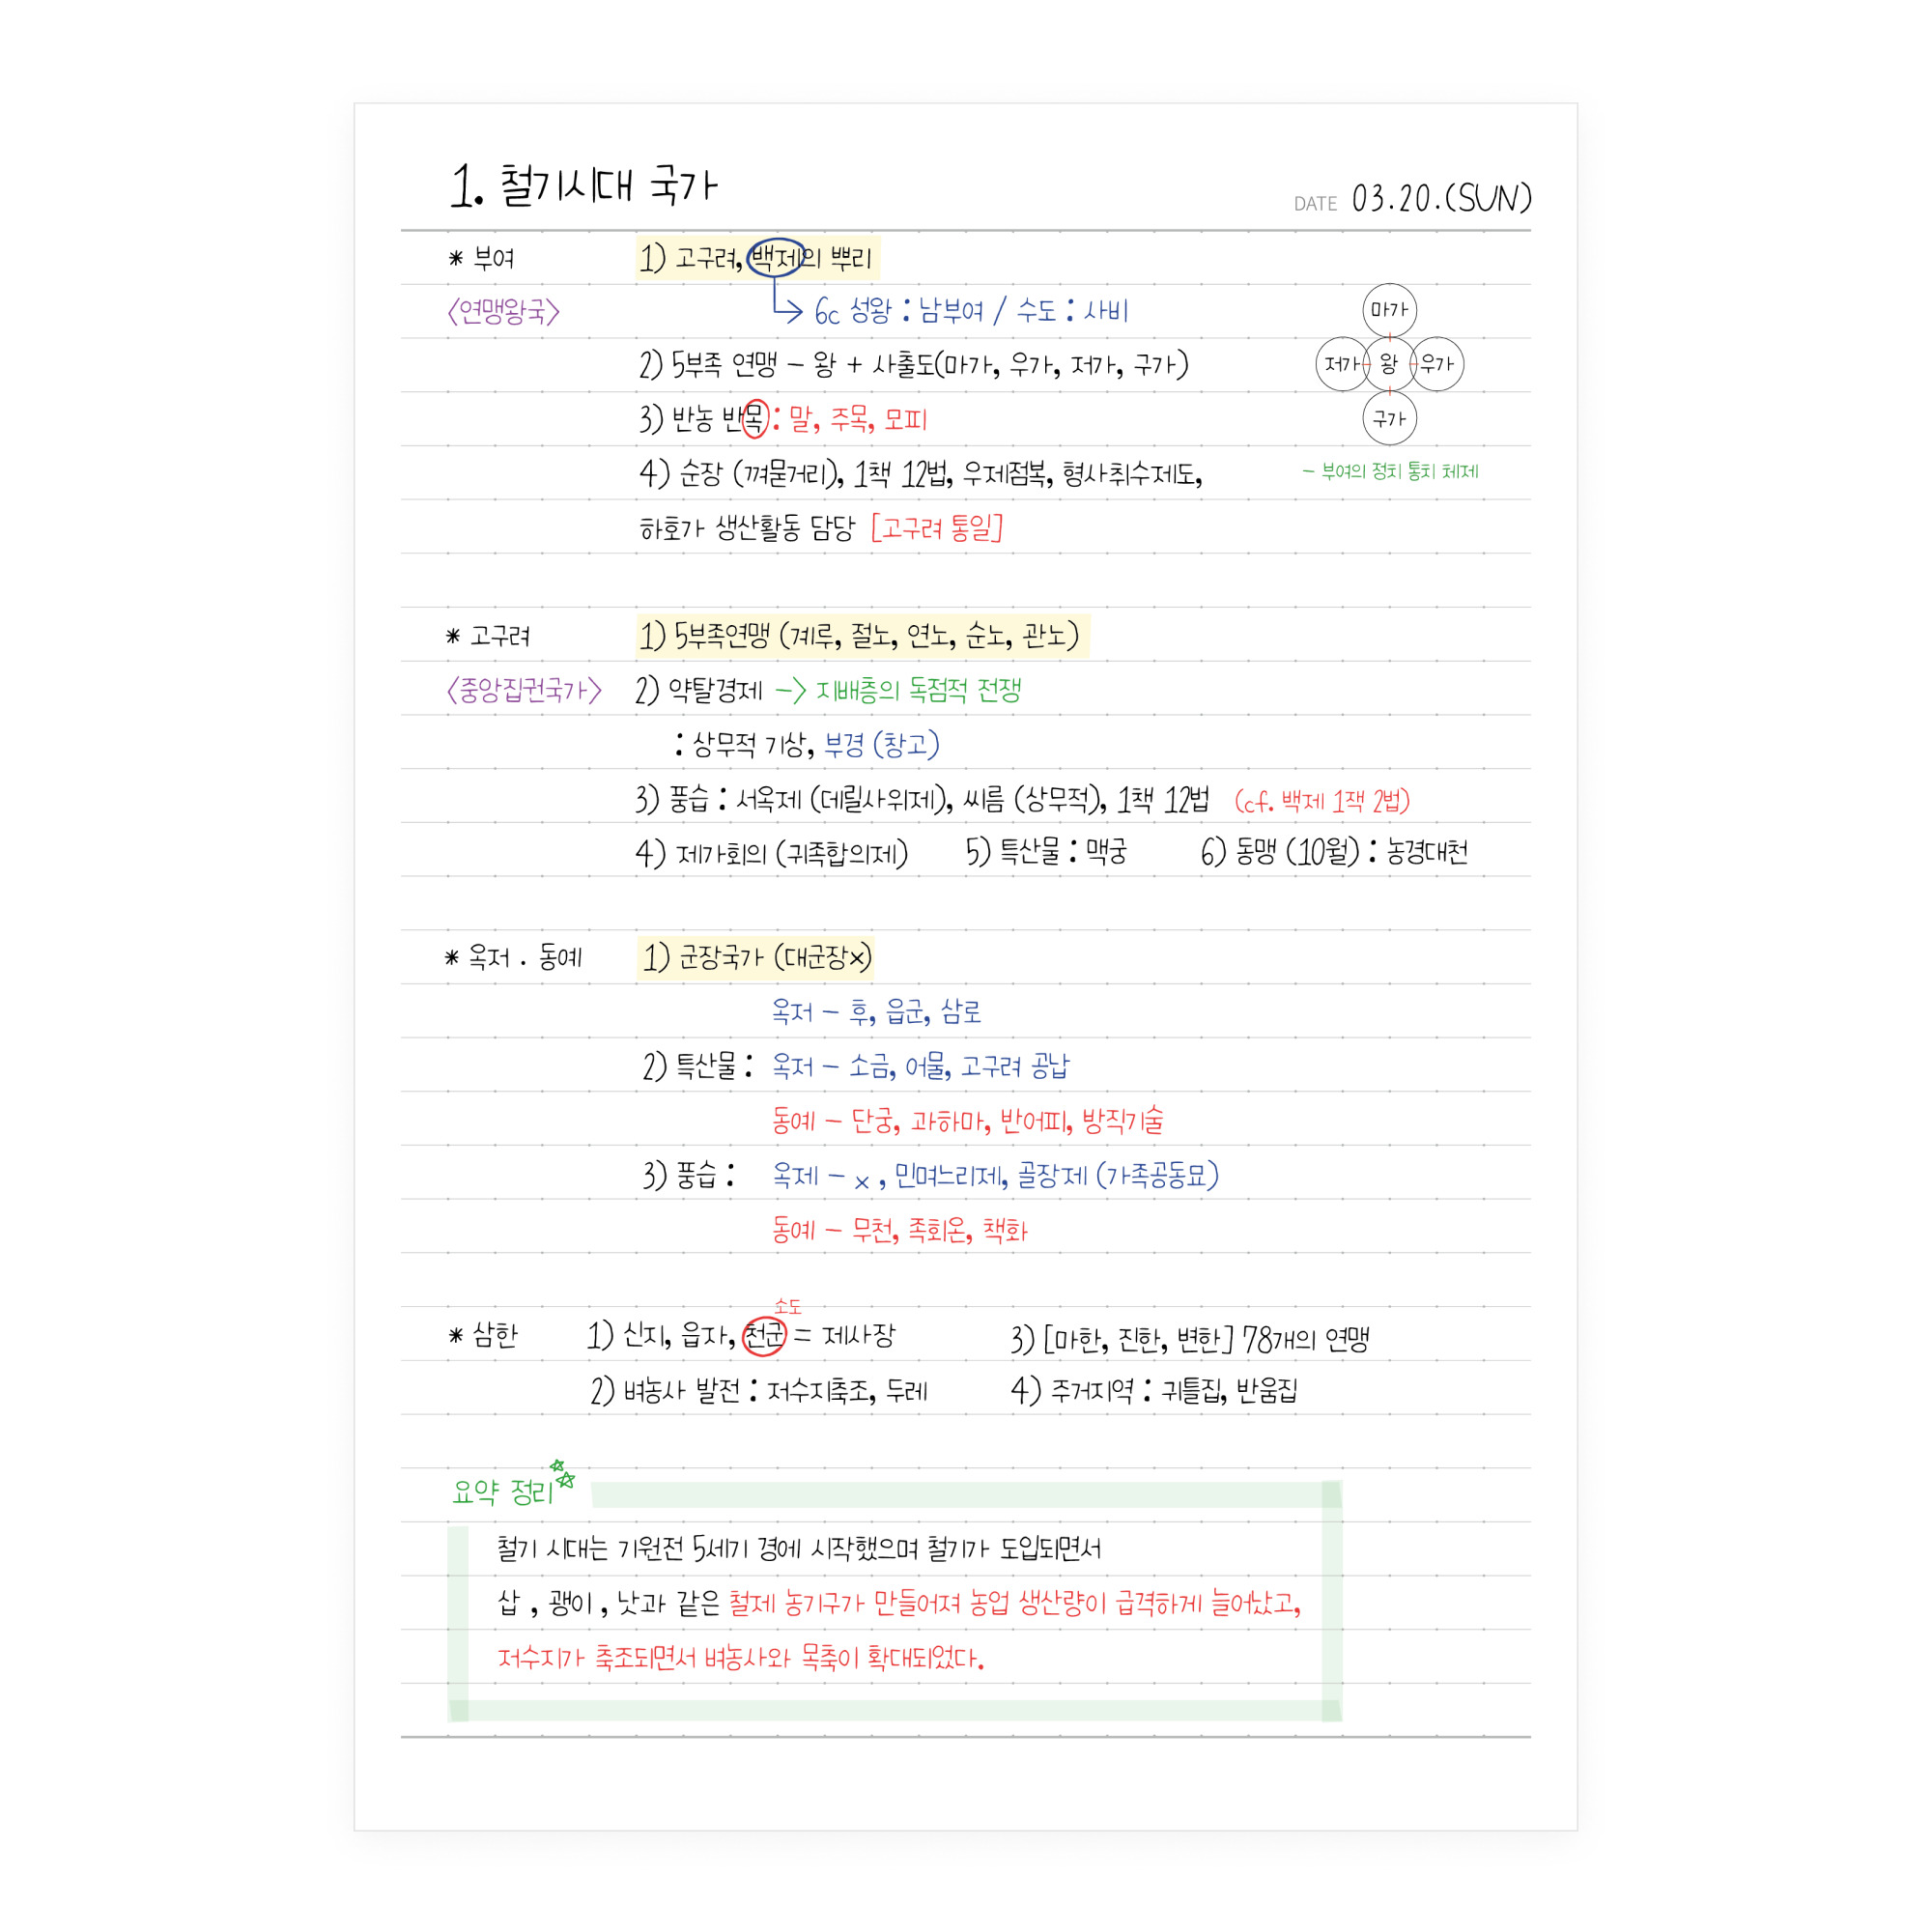 1. 철기시대 국가
DATE 03.20.(SUN)
* 부여 1) 고구려, 백제의 뿌리
<연맹왕국> 6c 성왕 : 남부여 / 수도 : 사비
2) 5부족 연맹 - 왕 + 사출도(마가, 우가, 저가, 구가)
3) 반농 반목 : 말, 주목, 모피
마가
저가 왕 우가
구가
- 부여의 정치 통치 체제
4) 순장 (껴묻거리), 1책 12법, 우제점복, 형사취수제도,
하호가 생산활동 담당 [고구려 통일]
* 고구려 1) 5부족연맹 (계루, 절노, 연노, 순노, 관노)
<중앙집권국가> 2) 약탈경제 -> 지배층의 독점적 전쟁
: 상무적 기상, 부경 (창고)
3) 풍습 : 서옥제 (데릴사위제), 씨름 (상무적), 1책 12법 (cf. 백제 1잭 2법)
4) 제가회의 (귀족합의제) 5) 특산물 : 맥궁 6) 동맹 (10월) : 농경대천
* 옥저 . 동예 1) 군장국가 (대군장×)
옥저 - 후, 읍군, 삼로
2) 특산물 : 옥저 - 소금, 어물, 고구려 공납
동예 - 단궁, 과하마, 반어피, 방직기술
3) 풍습 : 옥제 - × , 민며느리제, 골장제 (가족공동묘)
동예 - 무천, 족회온, 책화
소도
* 삼한 1) 신지, 읍자, 천군 = 제사장 3) [마한, 진한, 변한] 78개의 연맹
2) 벼농사 발전 : 저수지축조, 두레 4) 주거지역 : 귀틀집, 반움집
요약 정리
철기 시대는 기원전 5세기 경에 시작했으며 철기가 도입되면서
삽 , 괭이 , 낫과 같은 철제 농기구가 만들어져 농업 생산량이 급격하게 늘어났고,
저수지가 축조되면서 벼농사와 목축이 확대되었다.